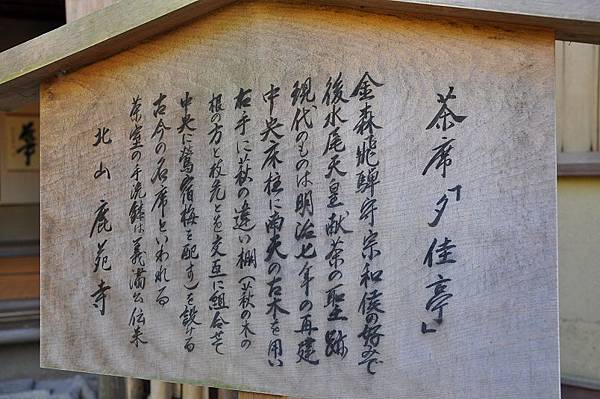 茶席「夕佳亭」
金森飛騨守宗和侯の好みで
後水尾天皇献茶の聖跡
現代のものは明治七年の再建
中央床柱に南天の古木を用い
右手に萩の違い棚(萩の木の
根の方と枝先とを交互に組合せて
中央に鶯宿梅を配す)を設ける
古今の名席といわれる
茶室の手洗鉢は義満公伝来
北山鹿苑寺
華